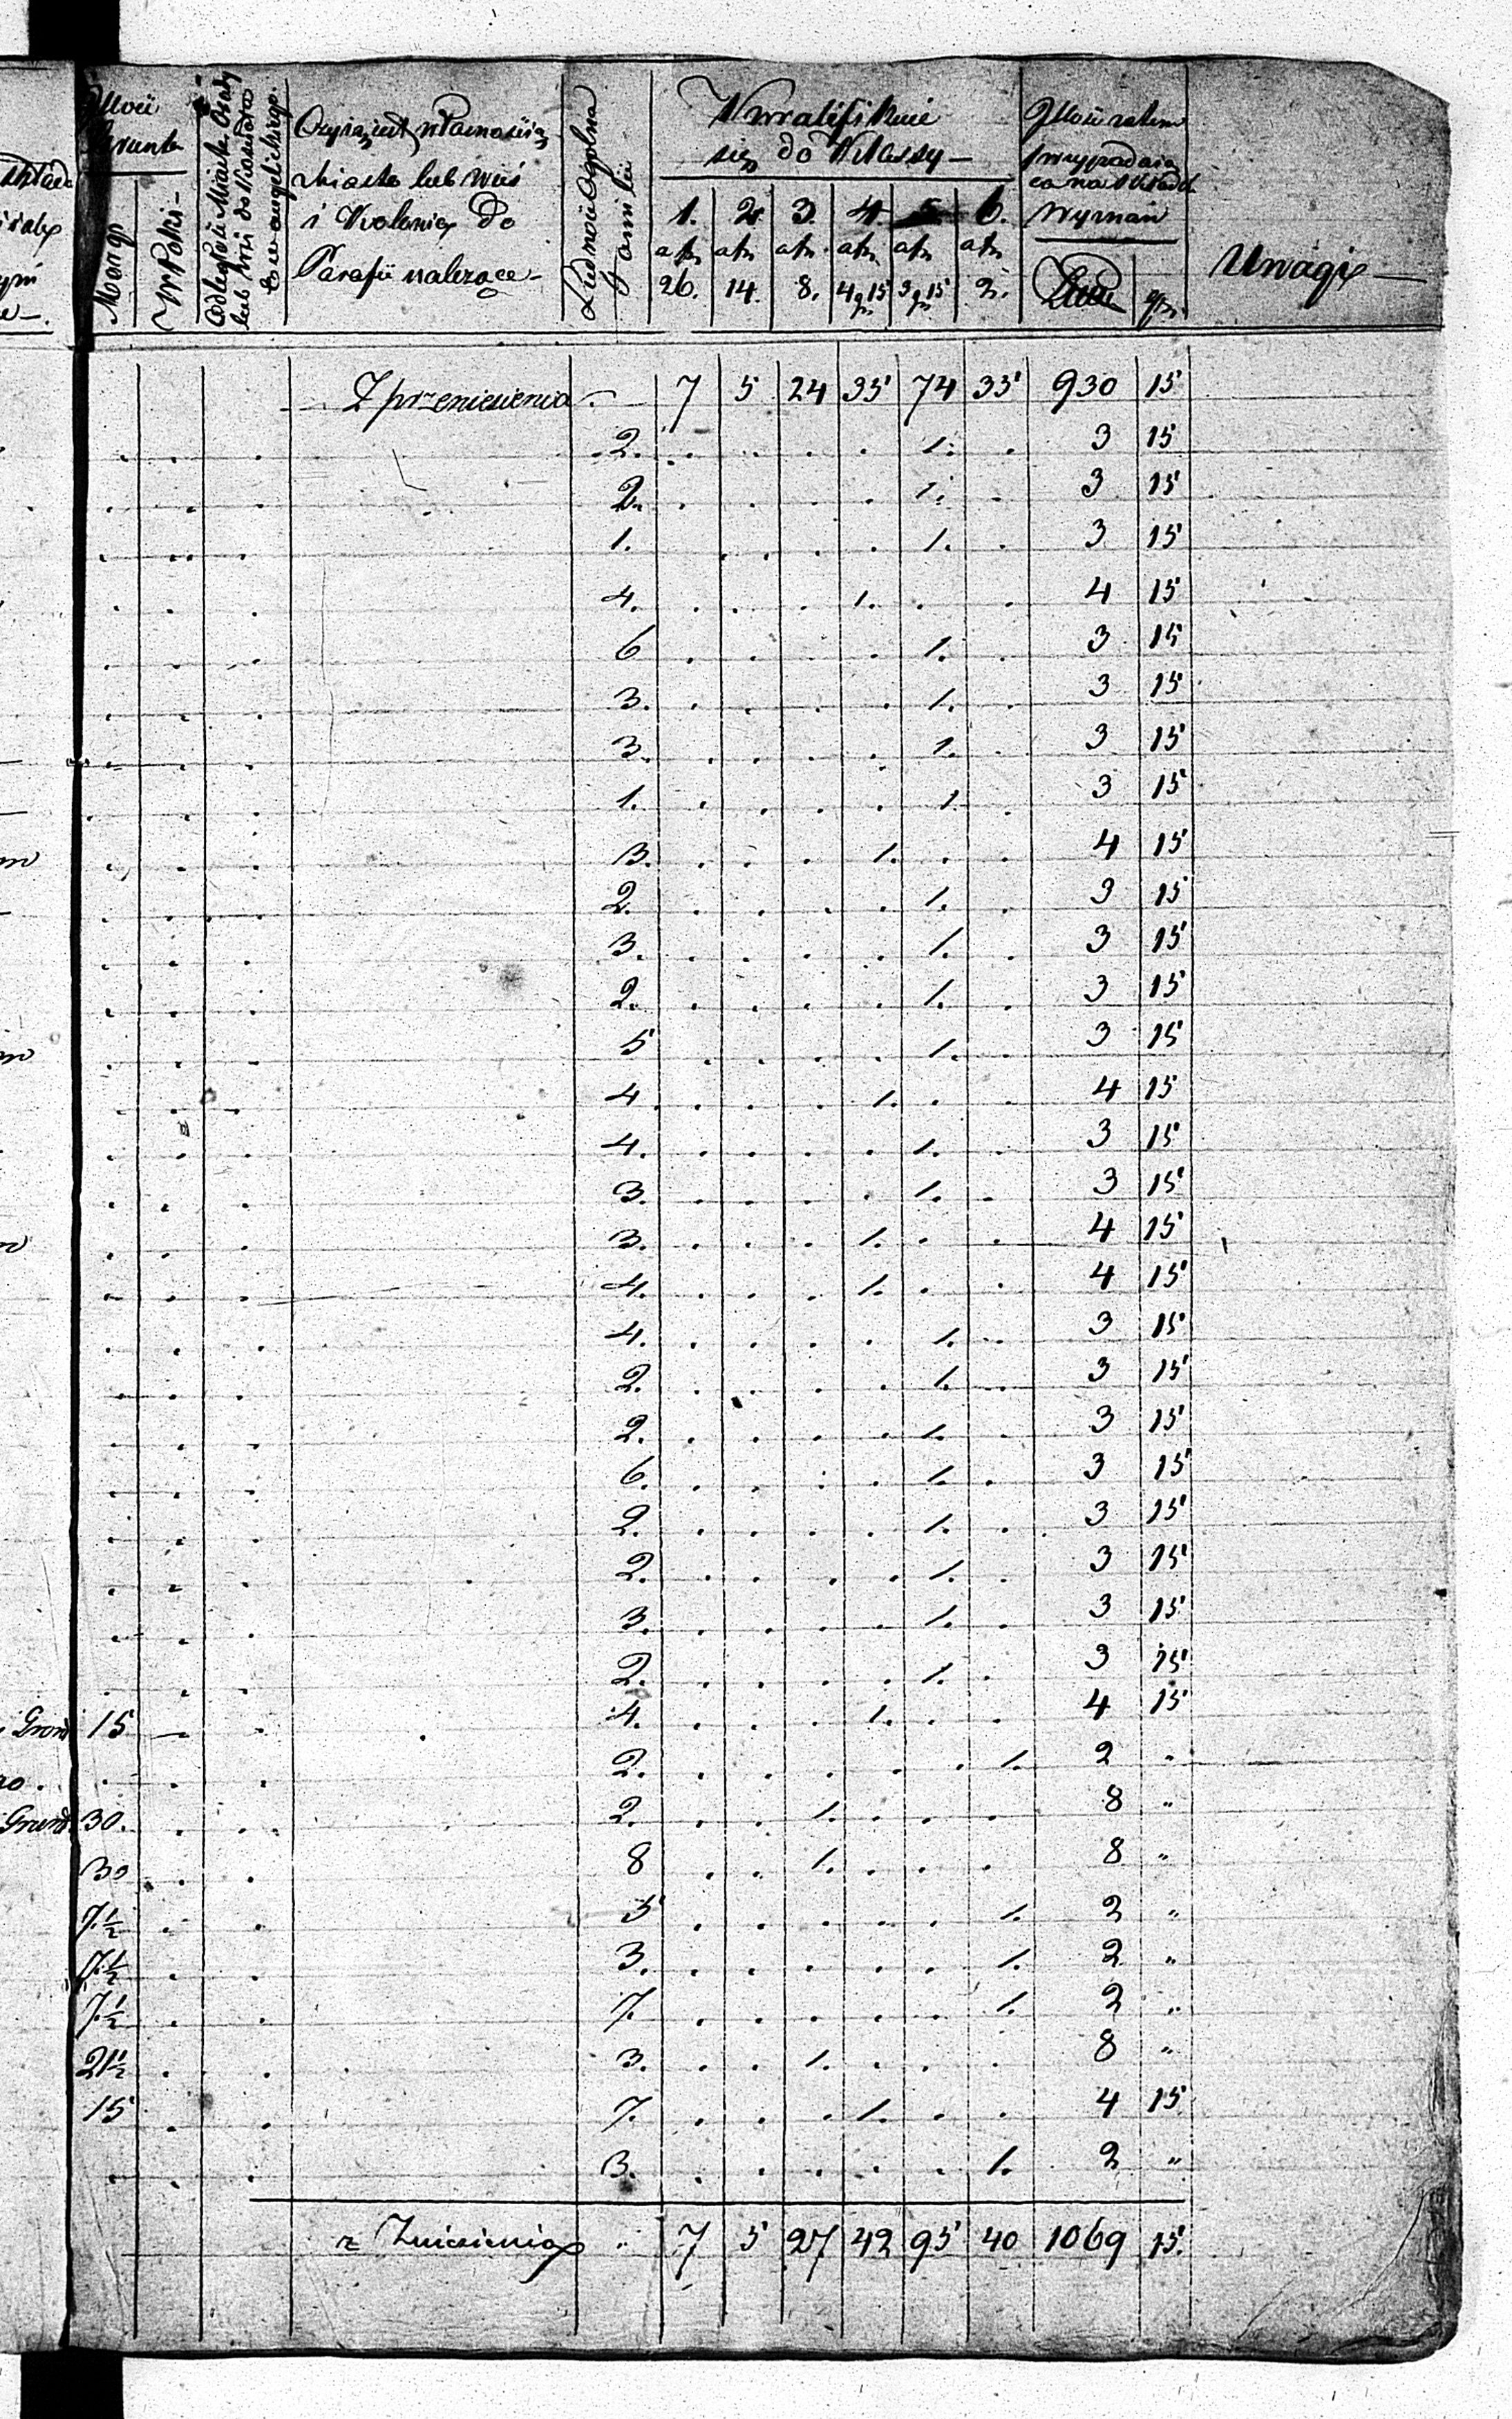 Gruntu
Morgi
W Polsce
Odległość Miasta Osady
lub Wsi do Kościoła
Ewangelickiego
Czyią iest własnością
Miasto lub Wieś
i Kolonia do
Parafii należące
Ludność Ogólna
Familii
Kwalifikuie
się do Klassy
1. 2. 3. 4. 5. 6.
a fl. a fl. a fl. a fl. a fl. a fl.
26. 14. 8. 4 gr 15 3 gr 15 2.
Ilość zatem
wypada
Wyznań
gr.
Uwagi
Z przeniesienia 7 5 24 35 74 33 930 15
2. 1. 3 15
2. 1. 3 15
1. 1. 3 15
4. 1. 4 15
6 1. 3 15
3. 1. 3 15
3. 1. 3 15
1. 1 3 15
3. 1. 4 15
2. 1. 3 15
3. 1. 3 15
2. 1. 3 15
5 1. 3 15
4. 1. 4 15
4. 1. 3 15
3. 1. 3 15
3. 1. 4 15
4. 1. 4 15
4. 1. 3 15
2. 1. 3 15
2. 1. 3 15
6. 1. 3 15
2. 1. 3 15
2. 1. 3 15
3. 1. 3 15
2. 1. 3 15
15 4. 1. 4 15
2. 1. 2 "
30. 2. 1. 8 "
30 8 1. 8 "
7 1/2 5 1. 2 "
7 1/2 3. 1. 2 "
7 1/2 7. 1. 2 "
21 1/2 3. 1. 8 "
15 7. 1. 4 15
3. 1. 2 "
z Zniesienia " 7 5 27 42 95 40 1069 15.